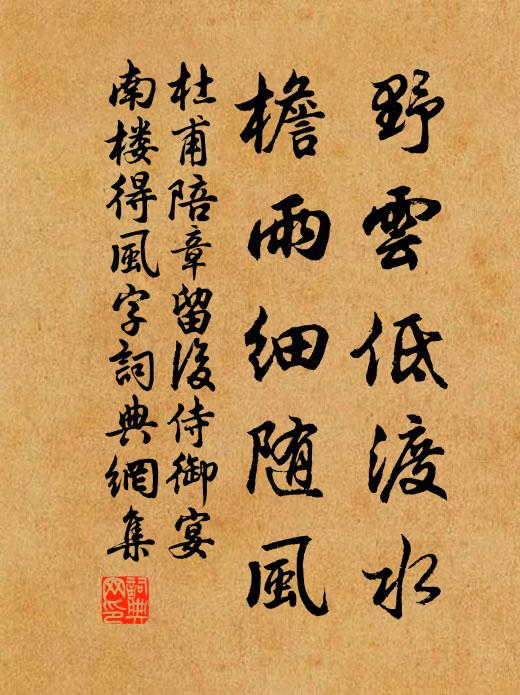 野雲低渡水
檐雨細随風
杜甫陪章留後侍御宴
南楼得風字詞典網集
詞典網印